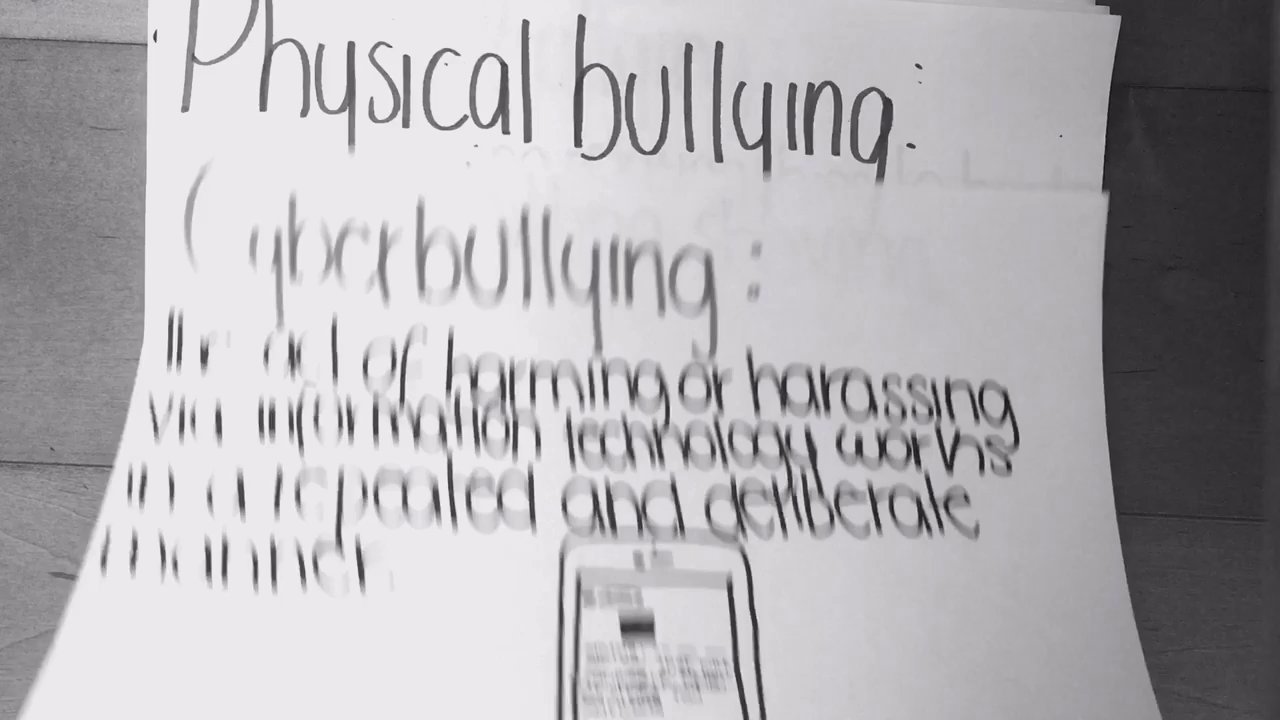 Physical bullying:
Cyberbullying:
The act of harming or harassing
via information technology works
in a repeated and deliberate
manner.